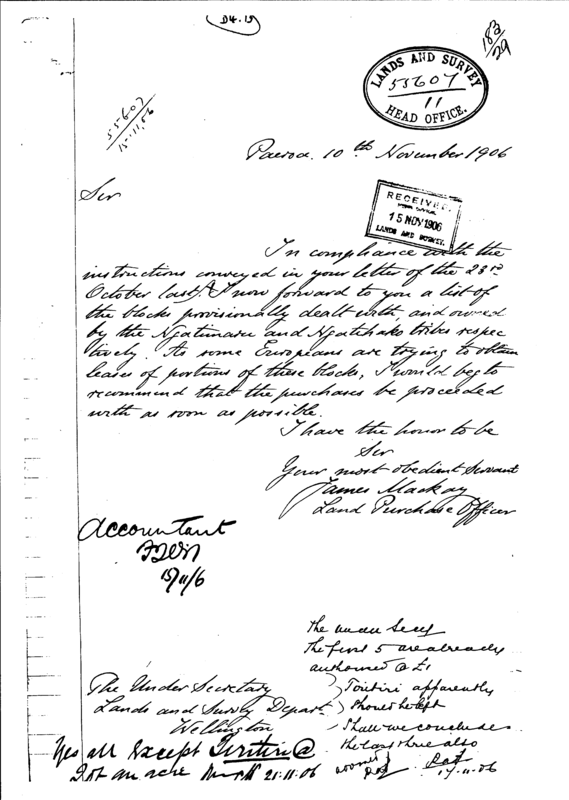 D4.13
182/29
LANDS AND SURVEY
55607
11
HEAD OFFICE.
55607
15.11.06
Paeroa. 10th November 1906
Sir
RECEIVED
15 NOV 1906
LANDS AND SURVEY.
In compliance with the
instructions conveyed in your letter of the 23rd
October last, I now forward to you a list of
the blocks provisionally dealt with, and owned
by the Ngatimaru and Ngatihako tribes respec
tively. As some Europeans are trying to obtain
leases of portions of these blocks, I would beg to
recommend that the purchases be proceeded
with as soon as possible.
I have the honor to be
Sir
Your most obedient servant
James Mackay
Land Purchase Officer
Accountant
15/11/6
The Under Secy
The first 5 are already
authorised @ £1
Tiritiri apparently
should be left
Shall we conclude
the last three also
The Under Secretary
Lands and Survey Depart.
Wellington
Yes all except Tiritiri @
an acre 21.11.06